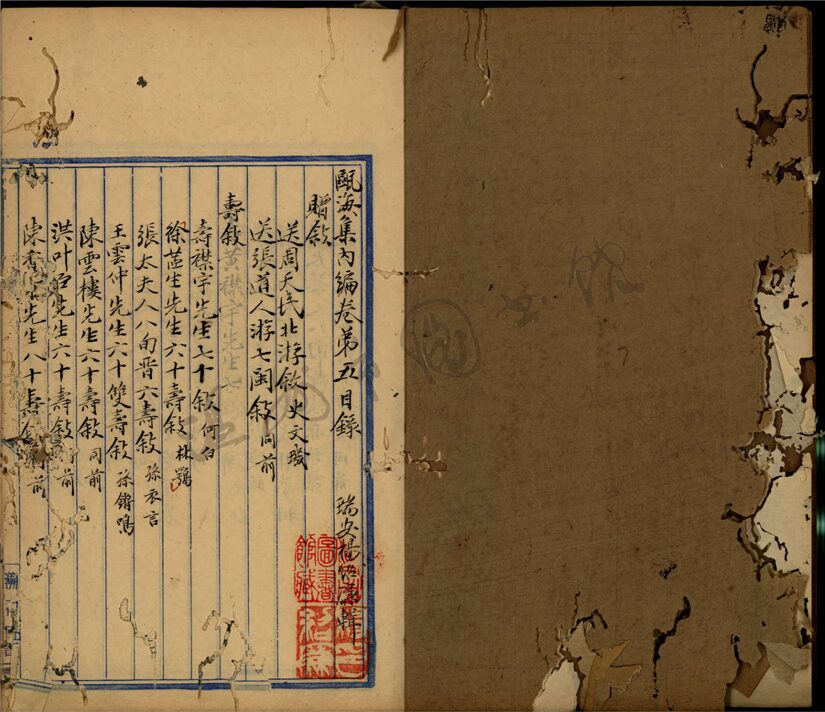 甌海集內編卷第五目錄
瑞安楊紹濂輯
贈敘
送周天民北游敘 史文璣
送張道人游七閩敘 同前
壽敘
壽襟宇先生七十敘 何白
徐芷生先生六十壽敘 林鶚
張太夫人八旬晋六壽敘 孫衣言
王雲仲先生六十雙壽敘 孫鏘鳴
陳雲樓先生六十壽敘 同前
洪叶 先生六十壽敘 前
陳 先生八十壽 前
圖書
館藏